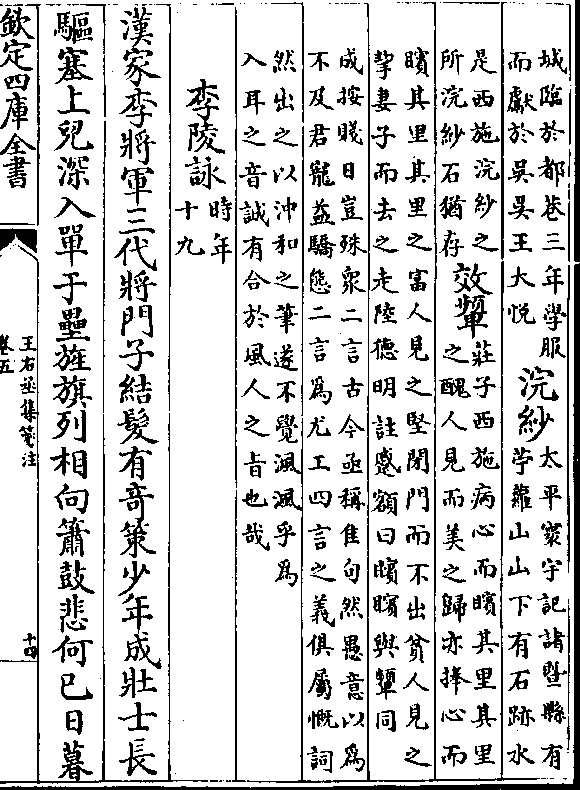 城臨於都巷三年學服
而獻於吳吳王大悅
浣紗
太平寰宇記諸暨縣有
苧蘿山山下有石跡水
是西施浣紗之
所浣紗石猶存
效顰
莊子西施病心而矉其里其里
之醜人見而美之歸亦捧心而
矉其里其里之富人見之堅閉門而不出貧人見之
挈妻子而去之走陸德明註蹙額曰矉矉與顰同
成按賤日豈殊衆二言古今亟稱佳句然愚意以爲
不及君寵益驕態二言爲尤工四言之義俱屬慨詞
然出之以沖和之筆遂不覺渢渢乎爲
入耳之音誠有合於風人之旨也哉
李陵詠
時年
十九
漢家李將軍三代將門子結髮有奇策少年成壯士長
驅塞上兒深入單于壘旌旗列相向簫鼓悲何已日暮
欽定四庫全書
王右丞集箋注
卷五
十四